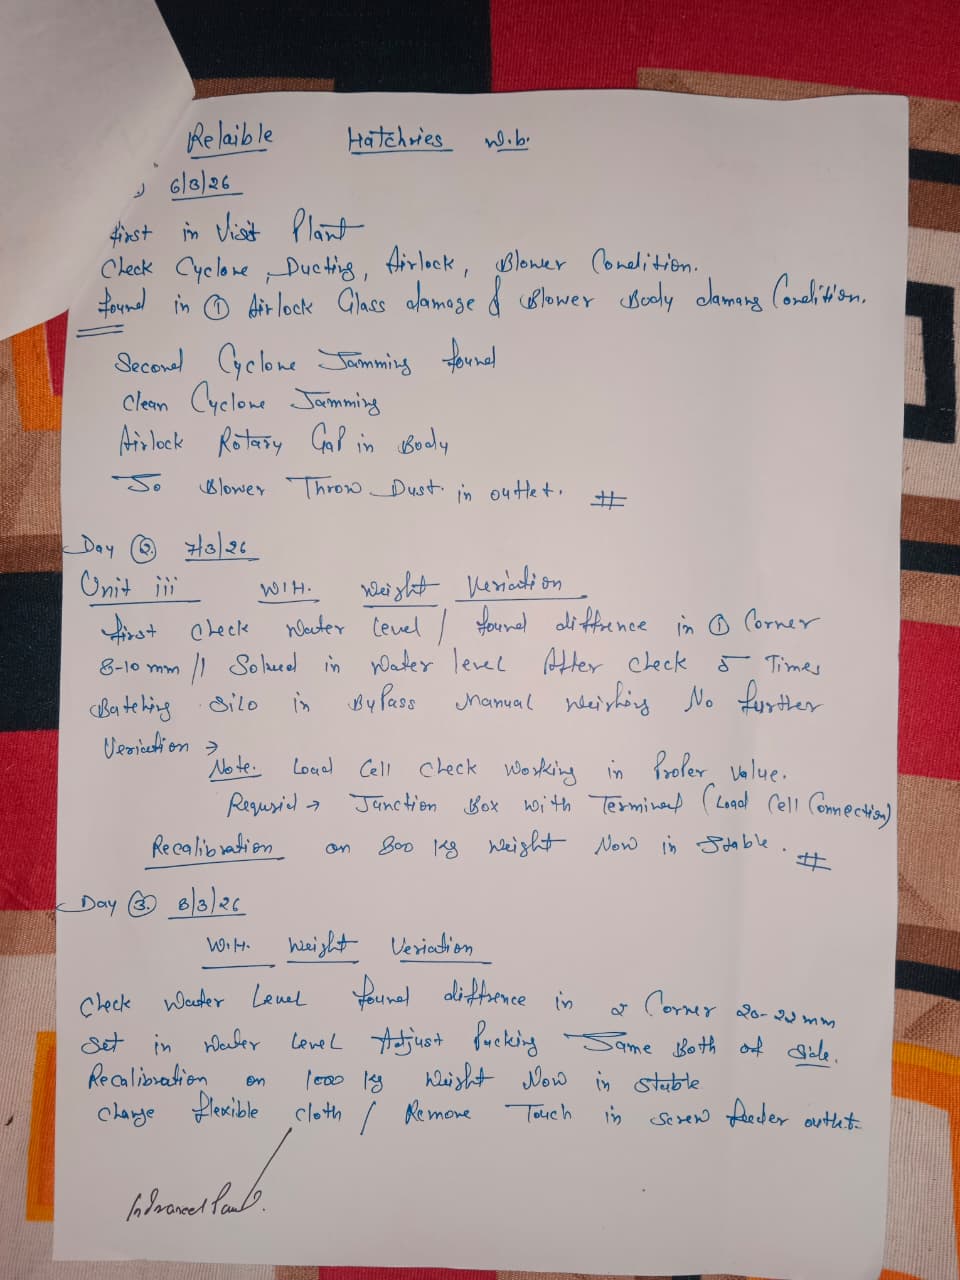 Relaible Hatchries W.b.
6/3/26
first in Visit Plant
Check Cyclone, Ducting, Airlock, Blower Condition.
found in ① Airlock Glass damage & Blower Body damang Condition.
Second Cyclone Jamming found
Clean Cyclone Jamming
Airlock Rotary Gap in Body
So Blower Throw Dust. in outlet. #
Day ② 7/3/26
Unit iii W.H. Weight Veriation
first check Water level / found diffrence in ① Corner
8-10 mm // Solued in Water level After check 5 Times
Batching Silo in ByPass Manual Weishing No further
Veriation →
Note. Load Cell check Working in Proper Value.
Requrid → Junction Box with Terminal (Load Cell Connection)
Recalibration on 800 kg Weight Now in Stable. #
Day ③ 8/3/26
W.H. Weight Veriation
Check Water Level found diffrence in 2 Corner 20-22 mm
Set in Water Level Adjust Packing Same Both of Side.
Recalibration on 1000 kg Weight Now in Stable
Change flexible cloth / Remove Touch in Screw feeder outlet.